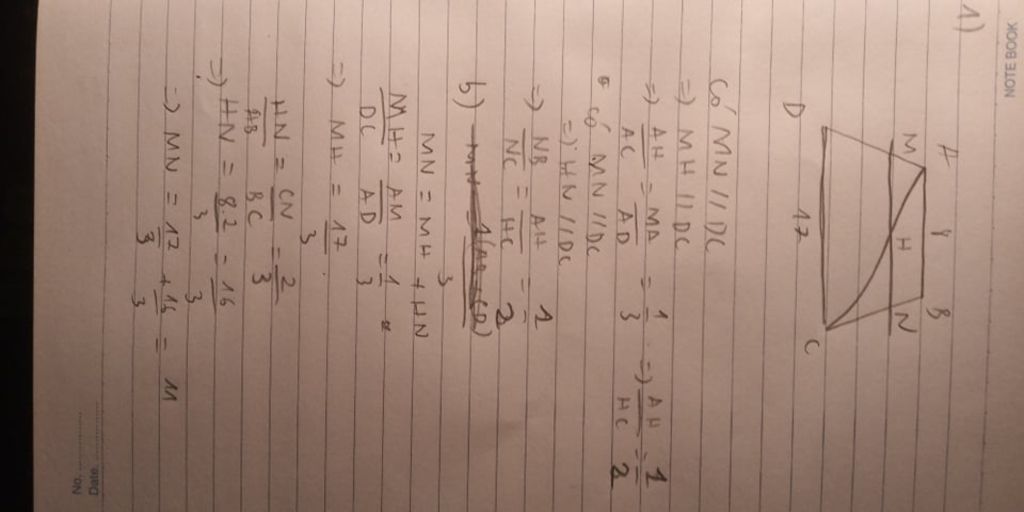 NOTE BOOK
1)
A 8 B
M H N
D 17 C
Có MN // DC
=) MH // DC
=) AH/AC = MA/AD = 1/3 =) AH/HC = 1/2
có MN // DC
=) HN // DC
=) NB/NC = AH/HC = 1/2
b)
MN = MH + HN
MH/DC = AM/AD = 1/3
=) MH = 17/3
HN/AB = CN/BC = 2/3
=) HN = 8.2/3 = 16/3
=) MN = 17/3 + 16/3 = 11
No.
Date